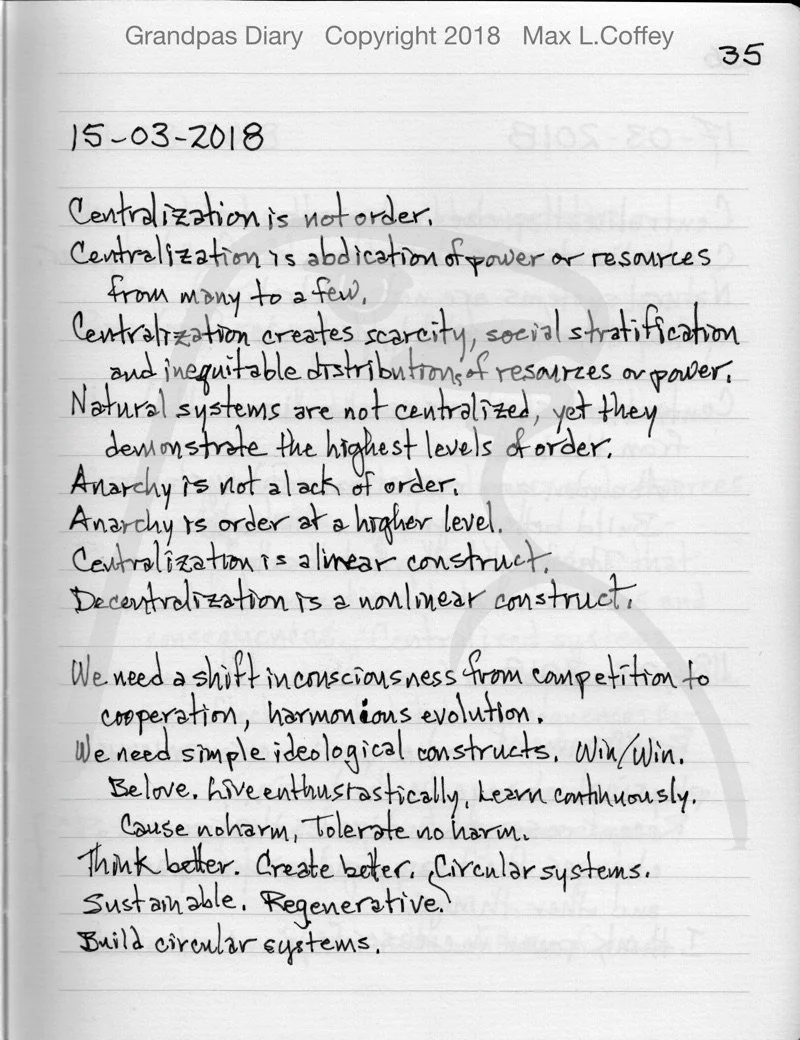 Grandpas Diary Copyright 2018 Max L.Coffey
35
15-03-2018
Centralization is not order.
Centralization is abdication of power or resources
from many to a few.
Centralization creates scarcity, social stratification
and inequitable distributions of resources or power.
Natural systems are not centralized, yet they
demonstrate the highest levels of order.
Anarchy is not a lack of order.
Anarchy is order at a higher level.
Centralization is a linear construct.
Decentralization is a nonlinear construct.
We need a shift in consciousness from competition to
cooperation, harmonious evolution.
We need simple ideological constructs. Win/Win.
Be love. Live enthusiastically, Learn continuously.
Cause no harm, Tolerate no harm.
Think better. Create better. Circular systems.
Sustainable. Regenerative.
Build circular systems.